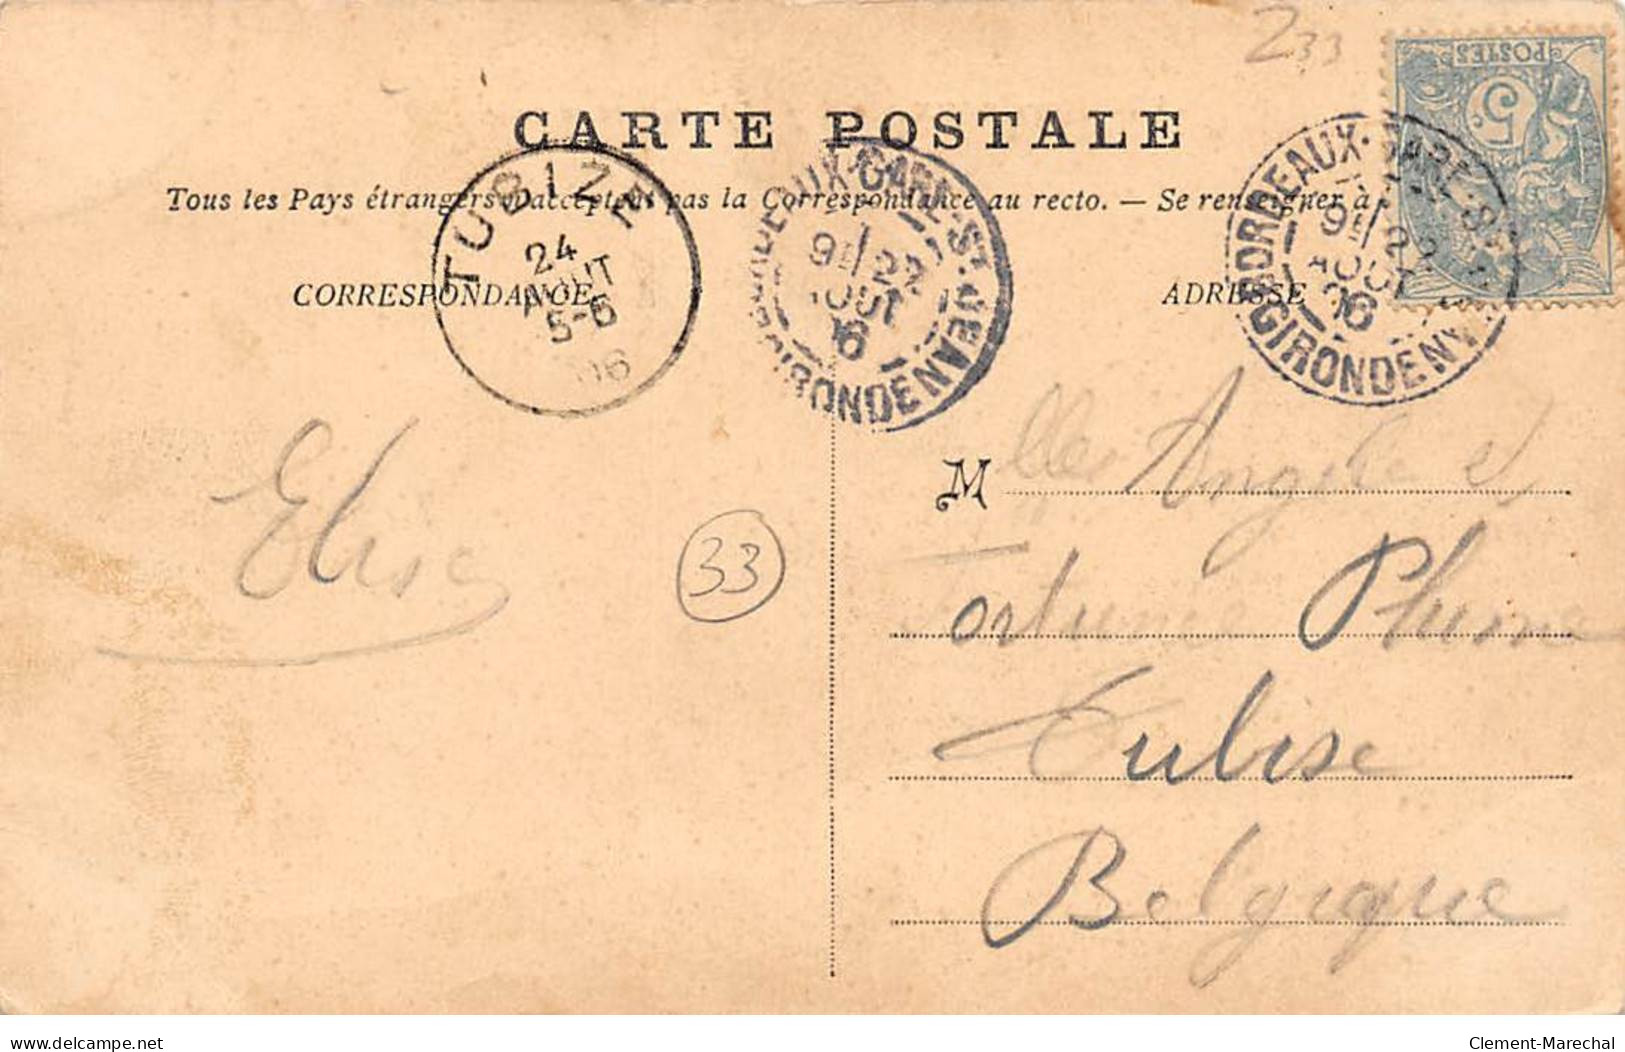 233
POSTES
5c
CARTE POSTALE
Tous les Pays étrangers n'acceptent pas la Correspondance au recto. — Se renseigner à
TUBIZE
24
AOUT
5-6
06
BORDEAUX-GARE-St JEAN
9E 22
AOUT
06
GIRONDE
BORDEAUX-GARE-St
9E 22
AOUT
06
GIRONDE
CORRESPONDANCE
ADRESSE
Elise
33
Mlle Angèle et
Fortunée
Tubise
Belgique
delcampe.net
Clement-Marechal